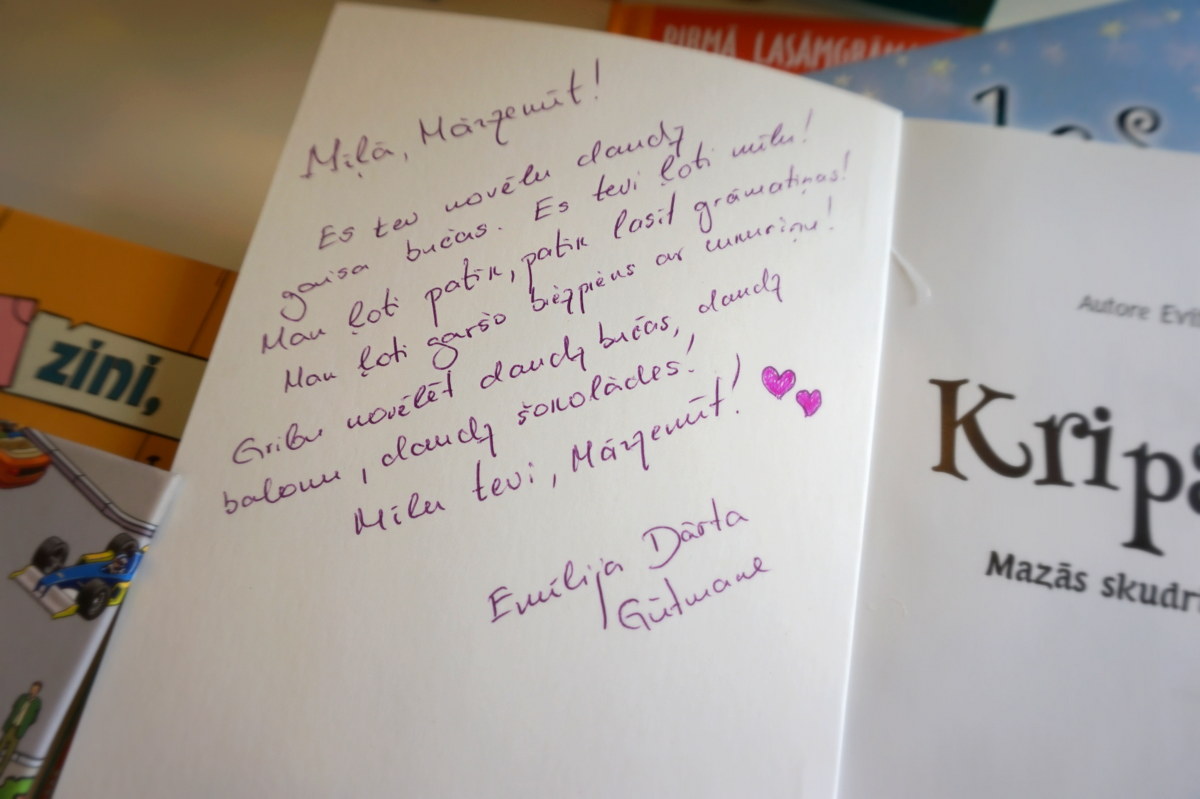 Miļā, Mārgenīt!
Es tev novēlu daudz
gaisa bučas. Es tevi ļoti mīlu!
Man ļoti patīk, patīk lasīt grāmatiņas!
Man ļoti garšo biezpiens ar cukuriņu!
Gribu novēlēt daudz bučas, daudz
balonu, daudz šokolādes!
Mīlu tevi, Mārgenīt!
Emīlija Dārta
Gūtmane
PIRMĀ LASĀMGRĀM
zini,
Autore Evi
Kripa
Mazās skudr